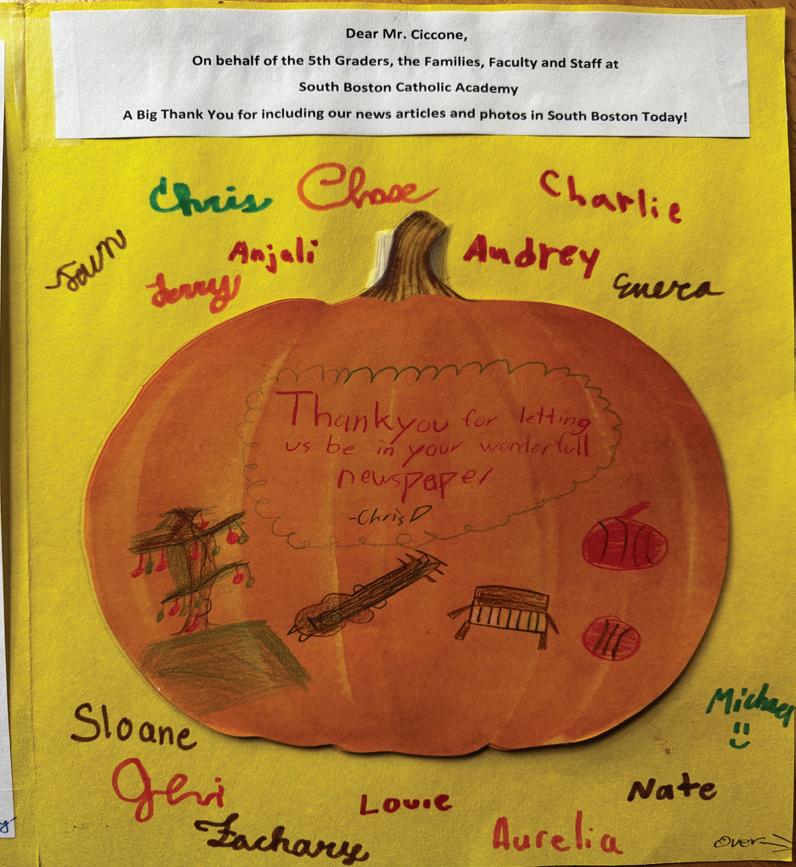 Dear Mr. Ciccone,
On behalf of the 5th Graders, the Families, Faculty and Staff at
South Boston Catholic Academy
A Big Thank You for including our news articles and photos in South Boston Today!
Chris Chase Charlie
Anjali Audrey
Thankyou for letting
us be in your wonderfull
newspaper
-Chris D
Sloane
Michael
Louie Nate
Zachary Aurelia
over